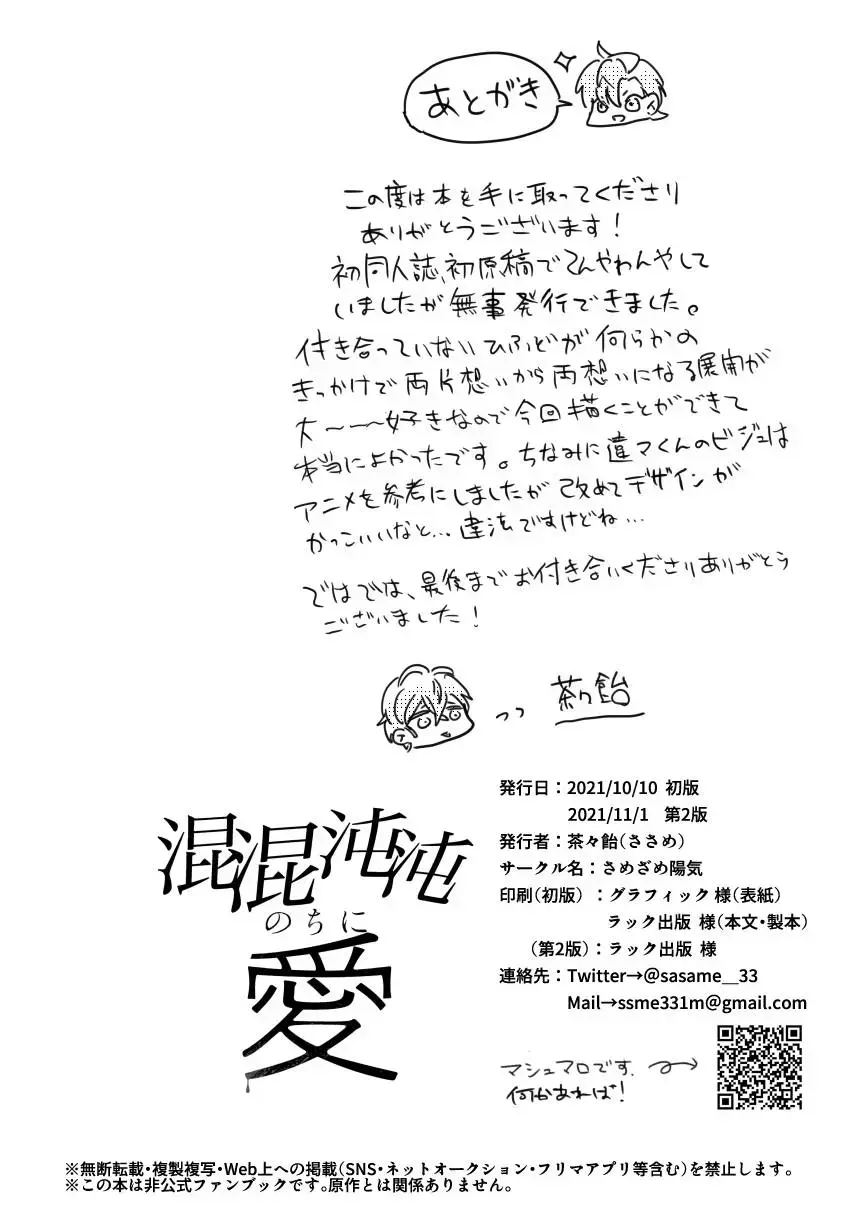 あとがき
この度は本を手に取ってくださり
ありがとうございます!
初同人誌、初原稿でてんやわんやして
いましたが無事発行できました。
付き合っていないひふどが何らかの
きっかけで両片想いから両想いになる展開が
大〜〜〜好きなので今回描くことができて
本当によかったです。ちなみに違マくんのビジュは
アニメを参考にしましたが改めてデザインが
かっこいいなと…違法ですけどね…
ではでは、最後までお付き合いくださりありがとう
ございました!
茶々飴
混混沌沌
のちに
愛
発行日:2021/10/10 初版
2021/11/1 第2版
発行者:茶々飴(ささめ)
サークル名:さめざめ陽気
印刷(初版):グラフィック様(表紙)
ラック出版 様(本文・製本)
(第2版):ラック出版 様
連絡先:Twitter→@sasame__33
Mail→ssme331m@gmail.com
マシュマロです。
何かあれば!
※無断転載・複製複写・Web上への掲載(SNS・ネットオークション・フリマアプリ等含む)を禁止します。
※この本は非公式ファンブックです。原作とは関係ありません。